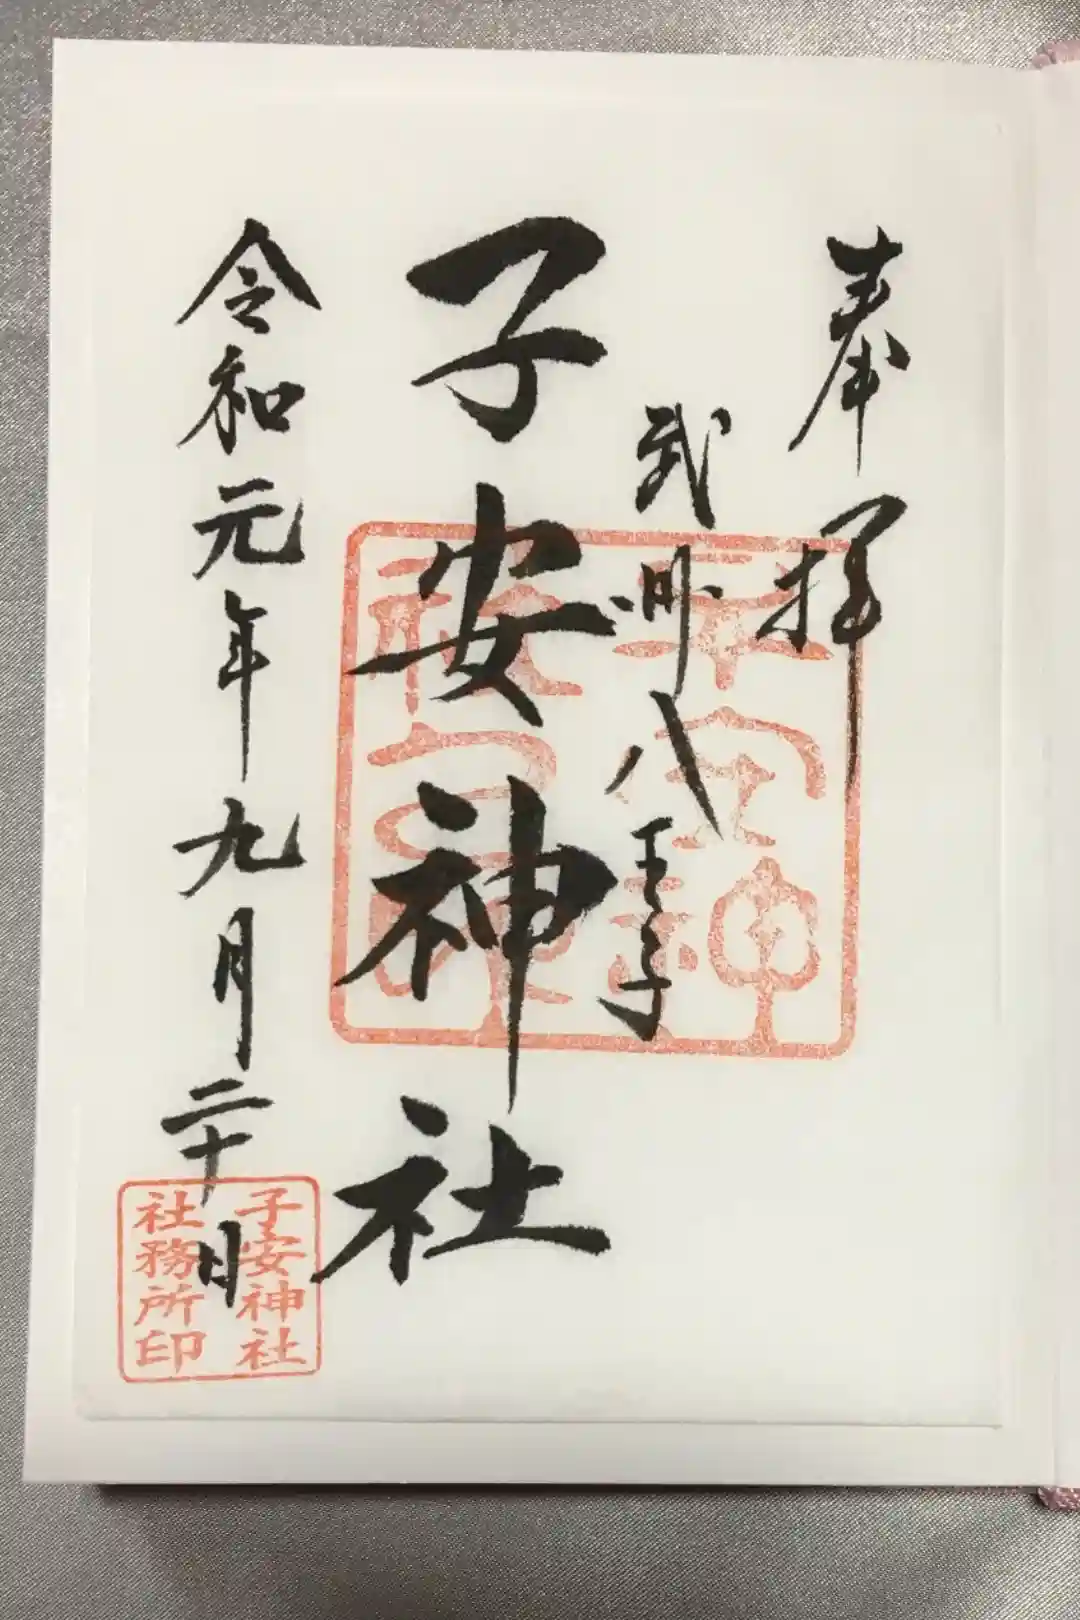 奉拝
武州八王子
子安神社
令和元年九月二十日
子安神社
社務所印